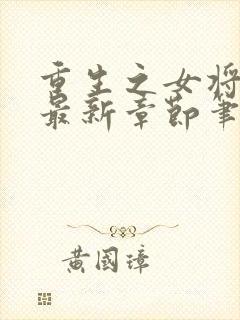 重生之女将
最新章节笔
黄国璋